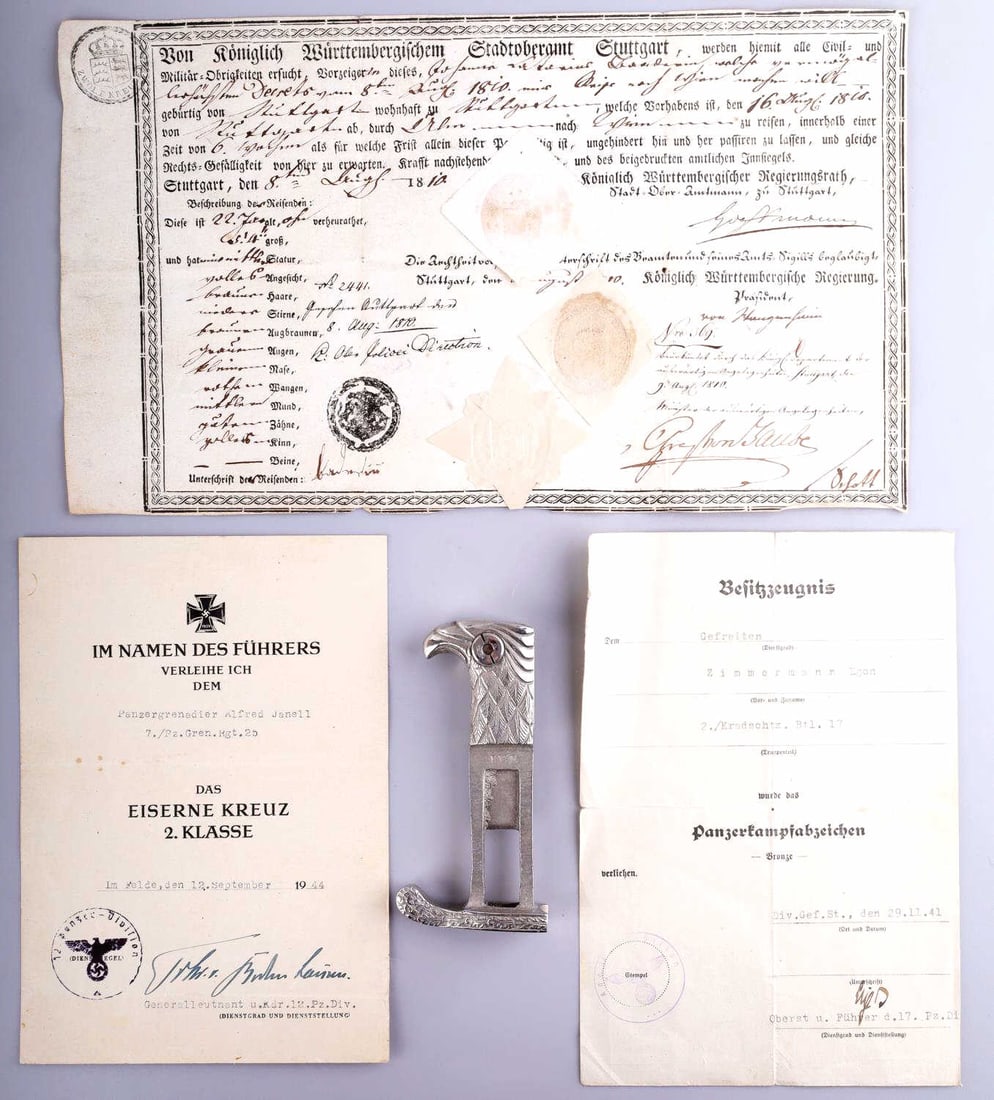 Von Königlich Württembergischem Stadtoberamt Stuttgart, werden hiemit alle Civil- und
Militär-Obrigkeiten ersucht, Vorzeigerin dieses,
allerhöchsten Decrets vom 8ten Augs. 1810. eine Reise nach Wien machen will
gebürtig von Stuttgart wohnhaft zu Stuttgart, welche Vorhabens ist, den 16 Augs. 1810.
von Stuttgart ab, durch Ulm nach Wien zu reisen, innerhalb einer
Zeit von 6. Wochen als für welche Frist allein dieser ist, ungehindert hin und her passiren zu lassen, und gleiche
Rechts-Gefälligkeit von hier zu erwarten. Krafft nachstehende und des beigedruckten amtlichen Innsiegels.
Stuttgart, den 8ten Augs. 1810.
Königlich Württembergischer Regierungsrath,
Stadt-Ober-Amtmann, zu Stuttgart,
Beschreibung des Reisenden:
Diese ist 22. Jahr alt, verheurathet,
5.'4" groß,
und hat mittle Statur,
volles Angesicht,
braune Haare,
Stirne,
braune Augbraunen,
graue Augen,
kleine Nase,
rothe Wangen,
mittlen Mund,
gute Zähne,
volles Kinn,
Beine,
Unterschrift des Reisenden:
No 2441.
Gesehen Stuttgart den
8. Aug: 1810.
K. Ober Polizei Direction.
Die Aechtheit Unterschrift des Beamten und seines Amts-Sigills beglaubigt,
Stuttgart, den August 10. Königlich Württembergische Regierung.
Präsident,
von Wangenheim
9. Augs. 1810.
Minister der auswärtigen Angelegenheiten,
Schott
IM NAMEN DES FÜHRERS
VERLEIHE ICH
DEM
Panzergrenadier Alfred Janell
7./Pz.Gren.Rgt.25
DAS
EISERNE KREUZ
2. KLASSE
Im Felde, den 12. September 1944
12. Panzer-Division
(DIENSTSIEGEL)
Generalleutnant u.Kdr.12.Pz.Div.
(DIENSTGRAD UND DIENSTSTELLUNG)
Besitzzeugnis
Dem Gefreiten
(Dienstgrad)
Zimmermann Egon
(Vor- und Zuname)
2./Kradschtz. Btl. 17
(Truppenteil)
wurde das
Panzerkampfabzeichen
— Bronze —
verliehen.
Div.Gef.St., den 29.11.41
(Ort und Datum)
Stempel
(Unterschrift)
Oberst u. Führer d.17. Pz.Di
(Dienstgrad und Dienststellung)